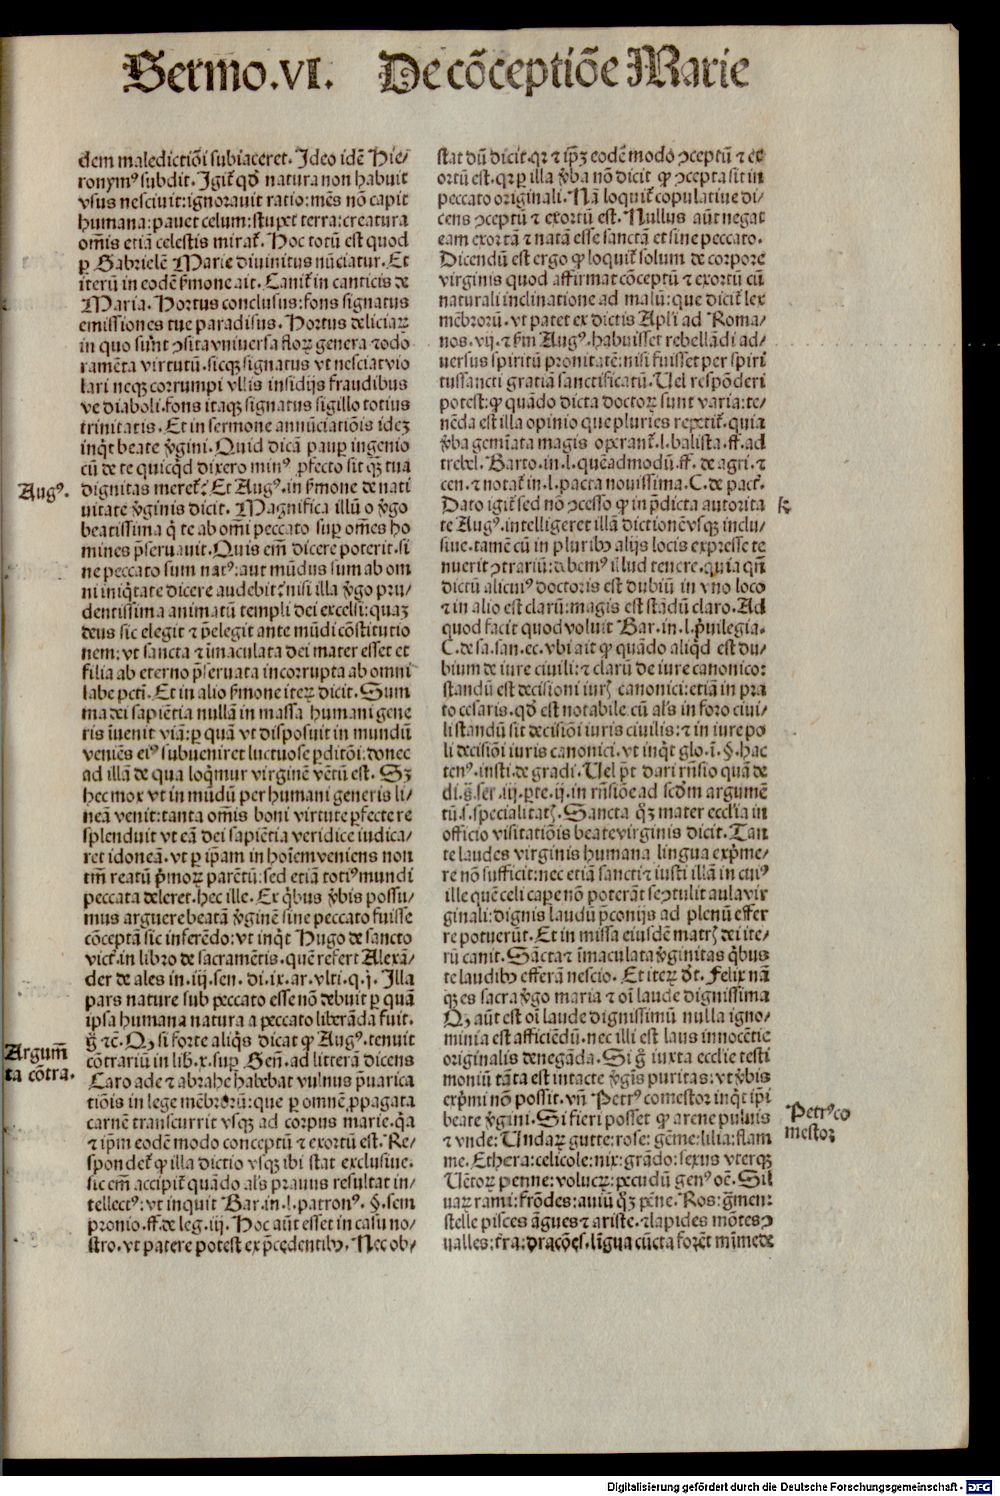 Sermo.VI. De cōceptiōe Marie
dem maledictiōi subiaceret. Ideo idē Hie/
ronymꝰ subdit. Igit̃ qđ natura non habuit
vsus nesciuit: ignorauit ratio: mēs nō capit
humana: pauet celum: stupet terra: creatura
om̄is etiā celestis mirat̃. Hoc totū est quod
ꝑ Gabrielē Marie diuinitus nūciatur. Et
iterū in eodē ẜmone ait. Canit̃ in canticis de
Maria. Hortus conclusus: fons signatus
emissiones tue paradisus. Hortus deliciaꝝ
in quo sunt ↄsita vniuersa floꝝ genera ⁊ odo
ramēta virtutū. sicqꝫ signatus vt nesciat vio
lari neqꝫ corrumpi vllis insidijs fraudibus
ve diaboli. fons itaqꝫ signatus sigillo totius
trinitatis. Et in sermone annūciatiōis ideꝫ
inqͥt beate v̓gini. Quid dicā pauꝑ ingenio
cū de te quicqͥd dixero minꝰ ꝓfecto sit qꝫ tua
dignitas meret̃? Et Augꝰ. in ẜmone de nati
Augꝰ.
uitate v̓ginis dicit. Magnifica illū o v̓go
beatissima qͥ te ab om̄i peccato suꝑ om̄es ho
mines p̄seruauit. Quis em̄ dicere poterit. si
ne peccato sum natꝰ: aut mūdus sum ab om
ni iniqͥtate dicere audebit? nisi illa v̓go pru/
dentissima animatū templi dei excelsi: quaꝫ
deus sic elegit ⁊ p̄elegit ante mūdi cōstitutio
nem: vt sancta ⁊ īmaculata dei mater esset et
filia ab eterno p̄seruata incorrupta ab omni
labe pctī. Et in alio ẜmone iteꝝ dicit. Sum
ma dei sapiētia nullā in massa humani gene
ris īuenit viā: ꝑ quā vt disposuit in mundū
veniēs eiꝰ subueniret luctuose ꝑditōi: donec
ad illā de qua loqͥmur virginē vētū est. Sꝫ
hec mox vt in mūdū per humani generis li/
neā venit: tanta om̄is boni virtute ꝑfecte re
splenduit vt eā dei sapiētia veridice iudica/
ret idoneā. vt ꝑ ip̄am in hoīem veniens non
tm̄ reatū p̓moꝝ parētū: sed etiā totiꝰ mundi
peccata deleret. hec ille. Ex qͥbus v̓bis possu/
mus arguere beatā v̓ginē sine peccato fuisse
cōceptā sic inferēdo: vt inqͥt Hugo de sancto
vict̃. in libro de sacramētis. quē refert Alexā/
der de ales in .iij. sen. di .ix. ar. vlti. q. j. Illa
pars nature sub peccato esse nō debuit ꝑ quā
ipsa humana natura a peccato liberāda fuit.
g̊ ⁊c̄. Qꝫ si forte aliqͥs dicat ꝙ Augꝰ. tenuit
Argum̄
ta cōtra.
cōtrariū in lib̃. x. suꝑ Gen̄. ad litterā dicens
Caro ade ⁊ abrahe habebat vulnus p̄uarica
tiōis in lege mēbroꝝ: que ꝑ omnē ꝓpagata
carnē transcurrit vsqꝫ ad corpus marie. qͣa
⁊ ip̄m eodē modo conceptū ⁊ exortū est. Re/
spondet̃ ꝙ illa dictio vsqꝫ ibi stat exclusiue.
sic em̄ accipit̃ quādo als̄ prauus resultat in/
tellectꝰ: vt inquit Bar. in .l. patronꝰ. §. sem
pronio. ff. de leg. iij. Hoc aūt esset in casu no/
stro. vt patere potest ex p̄cedentibꝫ. Nec ob/
stat dū dicit. qꝛ ⁊ ip̄ꝫ eodē modo ↄceptū ⁊ ex
ortū est. qꝛ ꝑ illa v̓ba nō dicit ꝙ ↄcepta sit in
peccato originali. Nā loquit̃ copulatiue di/
cens ↄceptū ⁊ exortū est. Nullus aūt negat
eam exortā ⁊ natā esse sanctā et sine peccato.
Dicendū est ergo ꝙ loquit̃ solum de corpore
virginis quod affirmat cōceptū ⁊ exortū cū
naturali inclinatione ad malū: que dicit̃ lex
mēbroꝝ. vt patet ex dictis Apl̄i ad Roma/
nos. vij. ⁊ ẜm Augꝰ. habuisset rebellādi ad/
uersus spiritū pronitatē: nisi fuisset per spiri
tussancti gratiā sanctificatū. Uel respōderi
potest: ꝙ quādo dicta doctoꝝ sunt varia: te/
nēda est illa opinio que pluries repetit̃. quia
v̓ba gemīata magis operant̃. l. balista. ff. ad
trebel. Barto. in .l. queādmodū. ff. de agri. ⁊
cen. ⁊ notat̃ in .l. pacta nouissima. C. de pact̃.
Dato igit̃ sed nō ↄcesso ꝙ in p̄dicta autorita
te Augꝰ. intelligeret illā dictionē vsqꝫ inclu/
siue. tamē cū in pluribꝫ alijs locis expresse te
nuerit ↄtrariū: debemꝰ illud tenere. quia qn̄
dictū alicuiꝰ doctoris est dubiū in vno loco
⁊ in alio est clarū: magis est stādū claro. Ad
quod facit quod voluit Bar. in .l. p̓uilegia.
C. de sa. san. ec. vbi ait ꝙ quādo aliqͥd est du/
bium de iure ciuili: ⁊ clarū de iure canonico:
standū est decisioni iurꝭ canonici: etiā in pra
to cesaris. qđ est notabile cū als̄ in foro ciui/
li standū sit decisiōi iuris ciuilis: ⁊ in iure po
li decisiōi iuris canonici. vt inqͥt glo. ī. §. hac
tenꝰ. insti. de gradi. Uel p̄t dari rn̄sio quā de
di. §. ser. iij. ꝑte. ij. in rn̄siōe ad scd̄m argumē
tū. s. specialitatꝭ. Sancta qͦꝫ mater eccl̄ia in
officio visitatiōis beate virginis dicit. Tan
te laudes virginis humana lingua exp̓me/
re nō sufficit: nec etiā sancti ⁊ iusti illā in cuiꝰ
ille quē celi capere nō poterāt se ↄtulit aula vir
ginali: dignis laudū p̄conijs ad plenū effer
re potuerūt. Et in missa eiusdē matrꝭ dei ite/
rū canit. Sācta ⁊ īmaculata v̓ginitas qͥbus
te laudibꝫ efferā nescio. Et iteꝝ d̄t. Felix nāꝫ
qꝫ es sacra v̓go maria ⁊ oī laude dignissima
Qꝫ aūt est oī laude dignissimū nulla igno/
minia est afficiēdū. nec illi est laus innocētie
originalis denegāda. Si g̊ iuxta eccl̄ie testi
moniū tāta est intacte v̓gīs puritas: vt v̓bis
exp̓mi nō possit. vn̄ Petrꝰ comestor inqͥt ip̄i
Petrꝰ co
mestoꝛ
beate v̓gini. Si fieri posset ꝙ arene puluis
⁊ vnde: Undaꝝ gutte: rose: gēme: lilia: flam
me. Ethera: celicole: nix: grādo: sexus vterqꝫ
Uētoꝝ penne: volucꝝ: pecudū genꝰ oē. Sil
uaꝝ rami: frōdes: auiū qͦꝫ pēne. Ros: grāmen:
stelle pisces āgues ⁊ ariste. ⁊ lapides mōtes ↄ
ualles: t̓ra: dracōes. līgua cūcta forēt mīme de
Digitalisierung gefördert durch die Deutsche Forschungsgemeinschaft - DFG